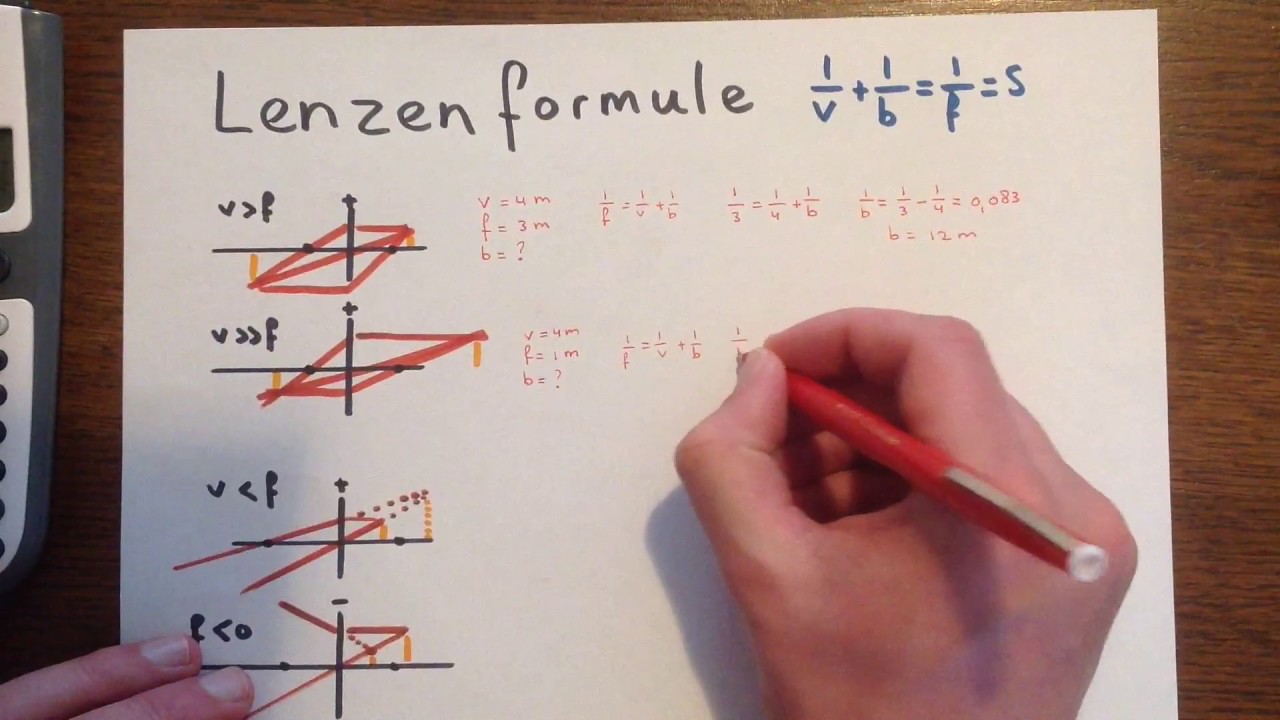 Lenzen formule 1/v + 1/b = 1/f = S
v>f
v = 4 m
f = 3 m
b = ?
1/f = 1/v + 1/b
1/3 = 1/4 + 1/b
1/b = 1/3 - 1/4 = 0,083
b = 12 m
+
v>>f
v = 4 m
f = 1 m
b = ?
1/f = 1/v + 1/b
+
v<f
+
f<0
-